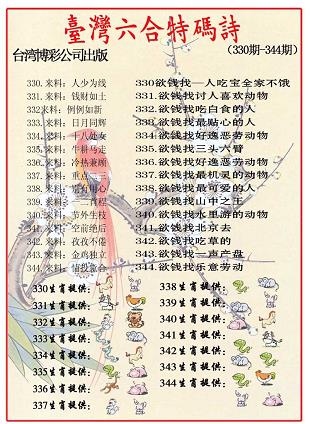 臺灣六合特碼詩
台湾博彩公司出版
（330期–344期）
330.来料：人少为线
331.来料：钱财如土
332来料：例例如新
333.来料：日月同辉
334.来料：十八处女
335.来料：牛耕马走
336.来料：冷热兼顾
337.来料：重点
338.来料：有用心
339.来料：一二首程
340.来料：节外生枝
341.来料：空前绝后
342.来料：孜孜不倦
343.来料：金鸡独立
344.来料：情投意合
330欲钱找一人吃宝全家不饿
331.欲钱找讨人喜欢动物
332.欲钱找吃白食的人
333.欲钱找最贴心的人
334.欲钱找好逸恶劳动物
335.欲钱找三头六臂
336.欲钱找好逸恶劳动物
337.欲钱找最机灵的动物
338.欲钱找最可爱的人
339.欲钱找山中之王
340.欲钱找水里游的动物
341.欲钱找北京去
342.欲钱找吃草的
343.欲钱找一声产盘
344.欲钱找乐意劳动
330生肖提供：
331生肖提供：
332生肖提供：
333生肖提供：
334生肖提供：
335生肖提供：
336生肖提供：
337生肖提供：
338生肖提供：
339生肖提供：
340生肖提供：
341生肖提供：
342生肖提供：
343生肖提供：
344生肖提供：